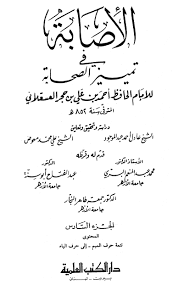 الإصابة
في
تمييز الصحابة
للإمام الحافظ أحمد بن علي بن حجر العسقلاني
المتوفى سنة ٨٥٢ هـ
دراسة وتحقيق وتعليق
الشيخ عادل أحمد عبد الموجود
الشيخ علي محمد معوض
قدم له وقرظه
الأستاذ الدكتور
محمد عبد المنعم البري
جامعة الأزهر
الدكتور
عبد الفتاح أبو سنة
جامعة الأزهر
الدكتور جمعة طاهر النجار
جامعة الأزهر
الجزء السادس
المحتوى
تتمة حرف الميم - إلى حرف الياء
دار الكتب العلمية